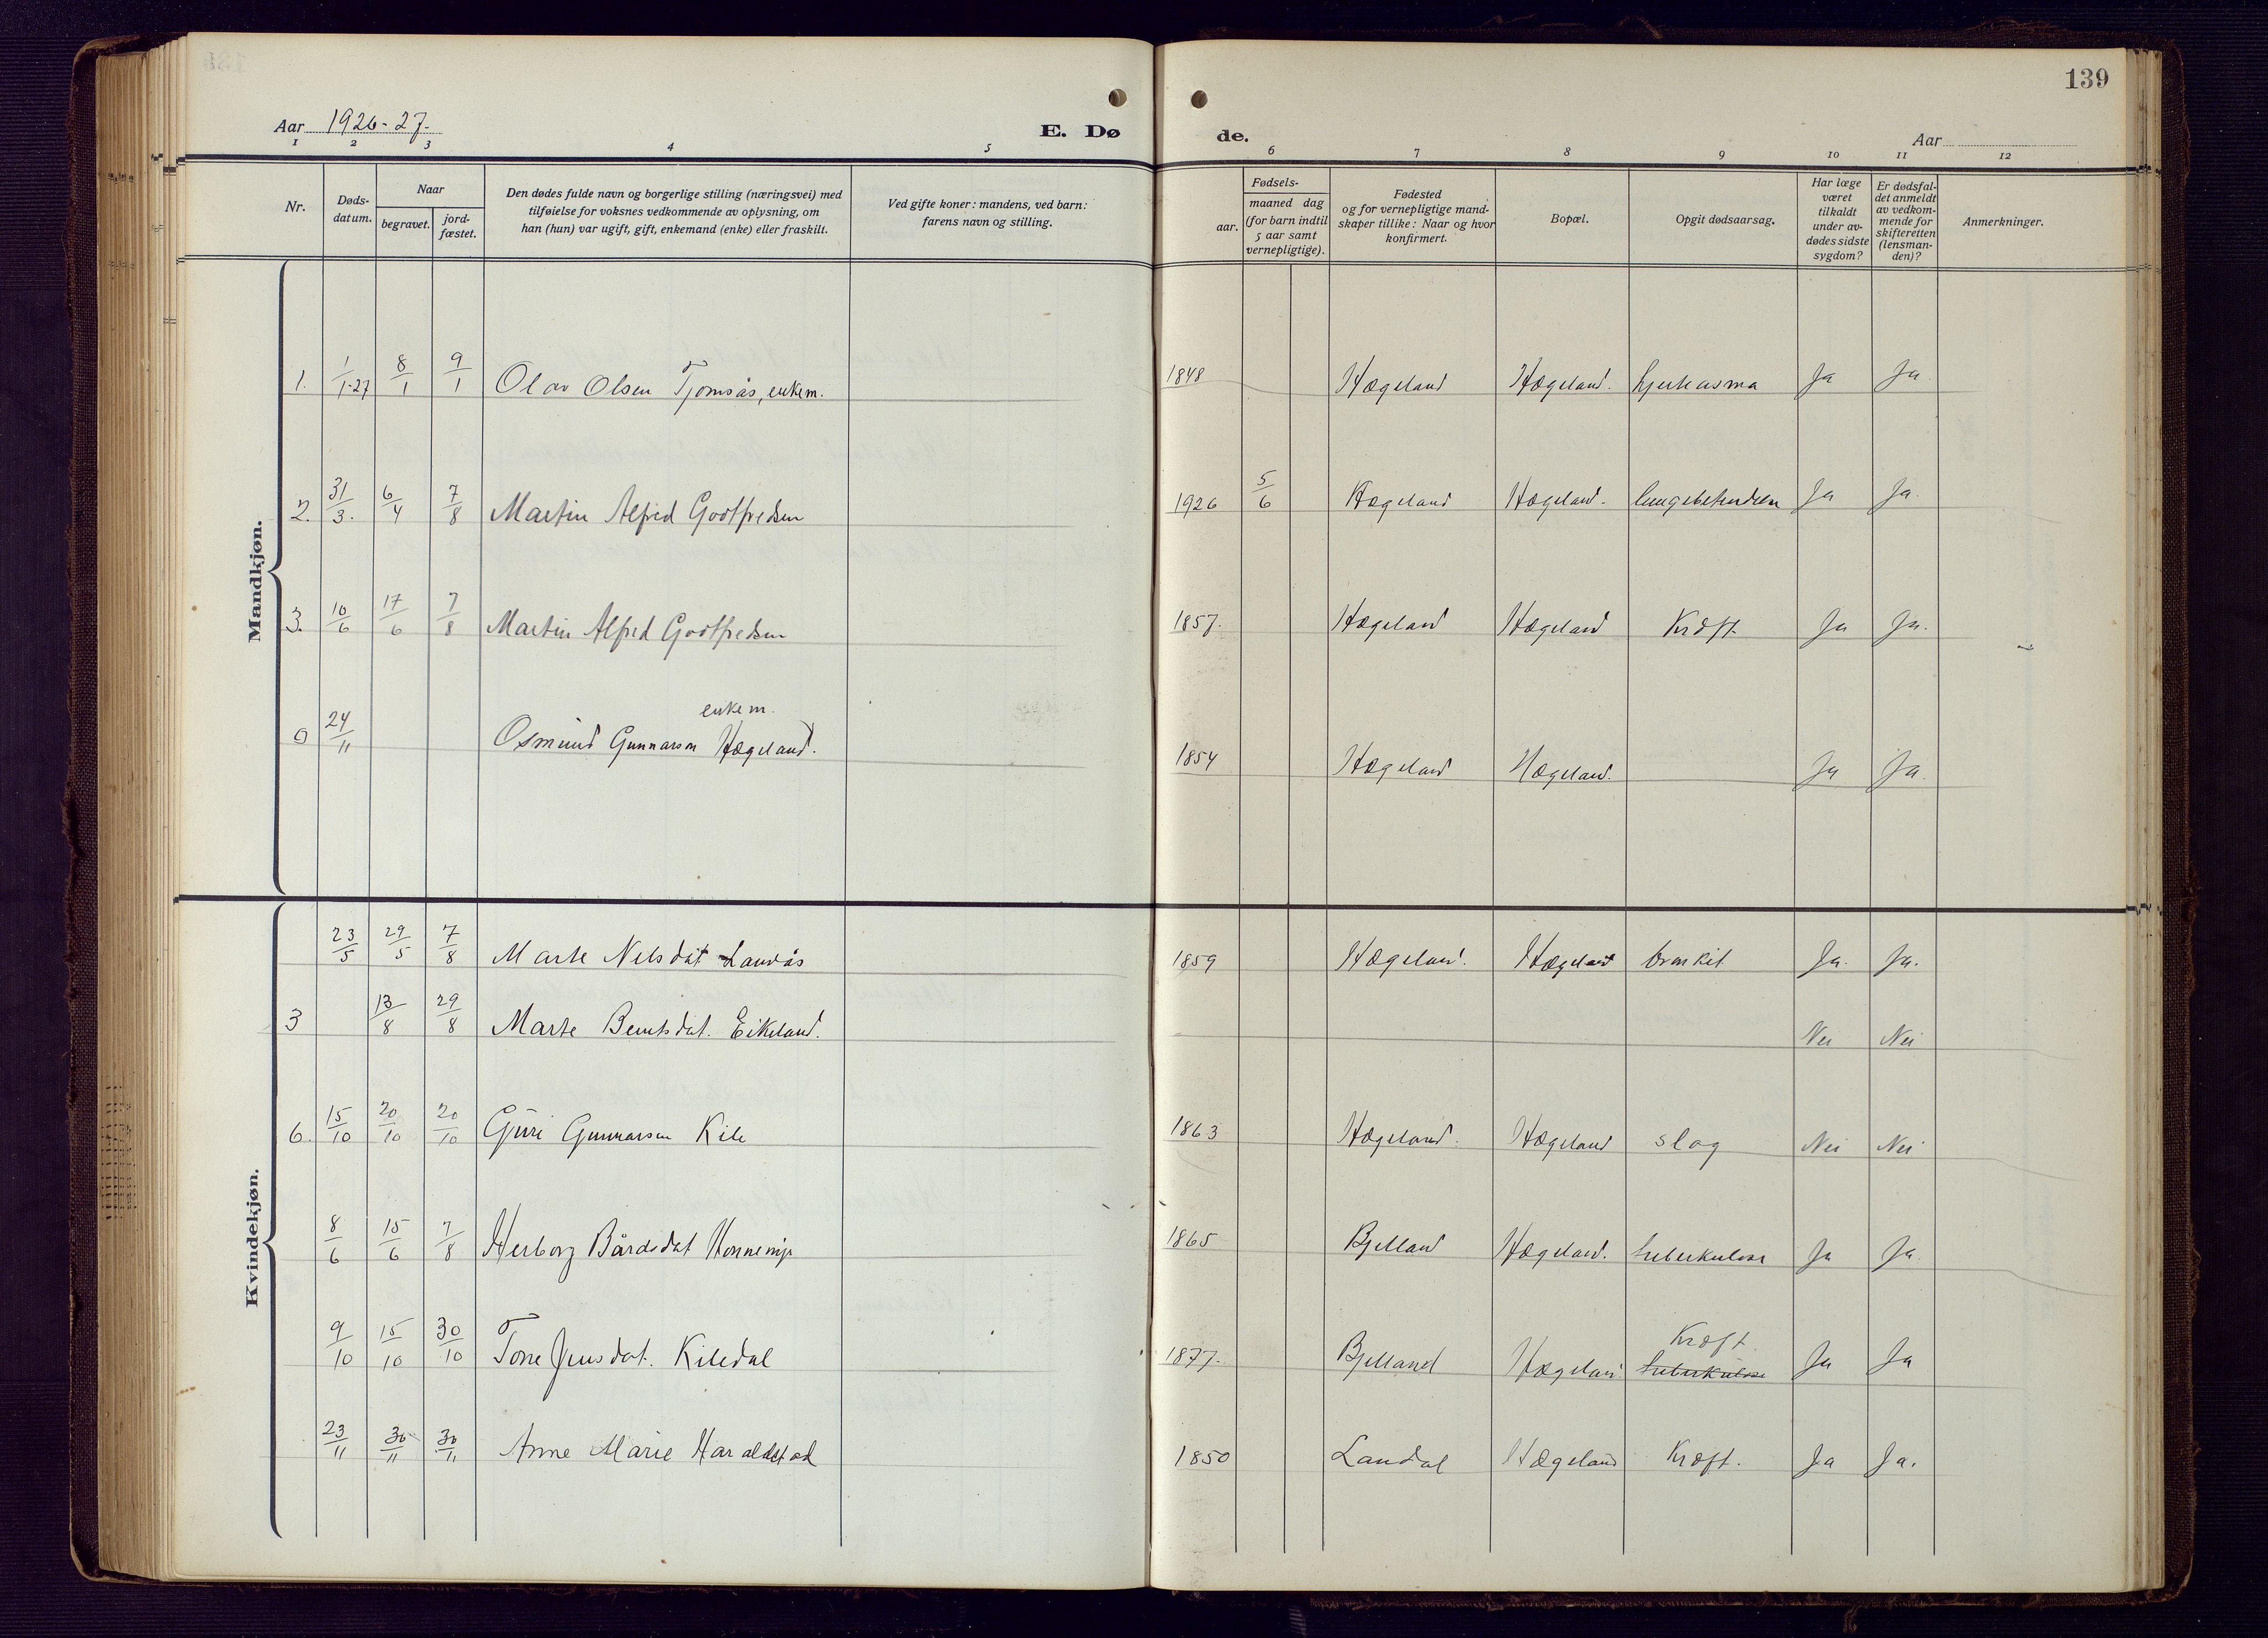 139
Aar 1926-27.
E. Dø
de.
Aar
1 2 3 4 5 6 7 8 9 10 11 12
Nr.
Døds-
datum.
Naar
begravet.
jord-
fæstet.
Den dødes fulde navn og borgerlige stilling (næringsvei) med
tilføielse for voksnes vedkommende av oplysning, om
han (hun) var ugift, gift, enkemand (enke) eller fraskilt.
Ved gifte koner: mandens, ved barn:
farens navn og stilling.
aar.
Fødsels-
maaned dag
(for barn indtil
5 aar samt
vernepligtige).
Fødested
og for vernepligtige mand-
skaper tillike: Naar og hvor
konfirmert.
Bopæl.
Opgit dødsaarsag.
Har læge
været
tilkaldt
under av-
dødes sidste
sygdom?
Er dødsfal-
det anmeldt
av vedkom-
mende for
skifteretten
(lensman-
den)?
Anmerkninger.
Mandkjøn.
1. 1/1-27 8/1 9/1 Olav Olsen Tjomsås, enkem. 1848 Hægeland Hægeland. hjerteasma Ja Ja
2. 31/3. 6/4 7/8 Martin Alfred Godtfredsen 1926 5/6 Hægeland Hægeland. lungebetendelse Ja Ja.
3. 10/6 17/6 7/8 Martin Alfred Godtfredsen 1857. Hægeland Hægeland Kræft Ja Ja.
enkem.
0 24/11 Osmund Gunnarson Hægeland. 1854 Hægeland Hægeland. Ja Ja.
Kvindekjøn.
23/5 29/5 7/8 Marte Nilsdat Landås 1859 Hægeland. Hægeland bronkit Ja. Ja.
3 13/8 29/8 Marte Berntsdat. Eikeland. Nei Nei
6. 15/10 20/10 20/10 Guri Gunnarsen Kile 1863 Hægeland. Hægeland slag Nei Nei
8/6 15/6 7/8 Herborg Bårdsdat 1865 Bjelland Hægeland. tuberkulose Ja Ja
Kræft.
9/10 15/10 30/10 Tone Jensdat. Kiledal 1877. Bjelland Hægeland tuberkulose Ja Ja
23/11 30/11 30/11 Anne Marie Haraldstad 1850 Laudal Hægeland Kræft. Ja Ja.